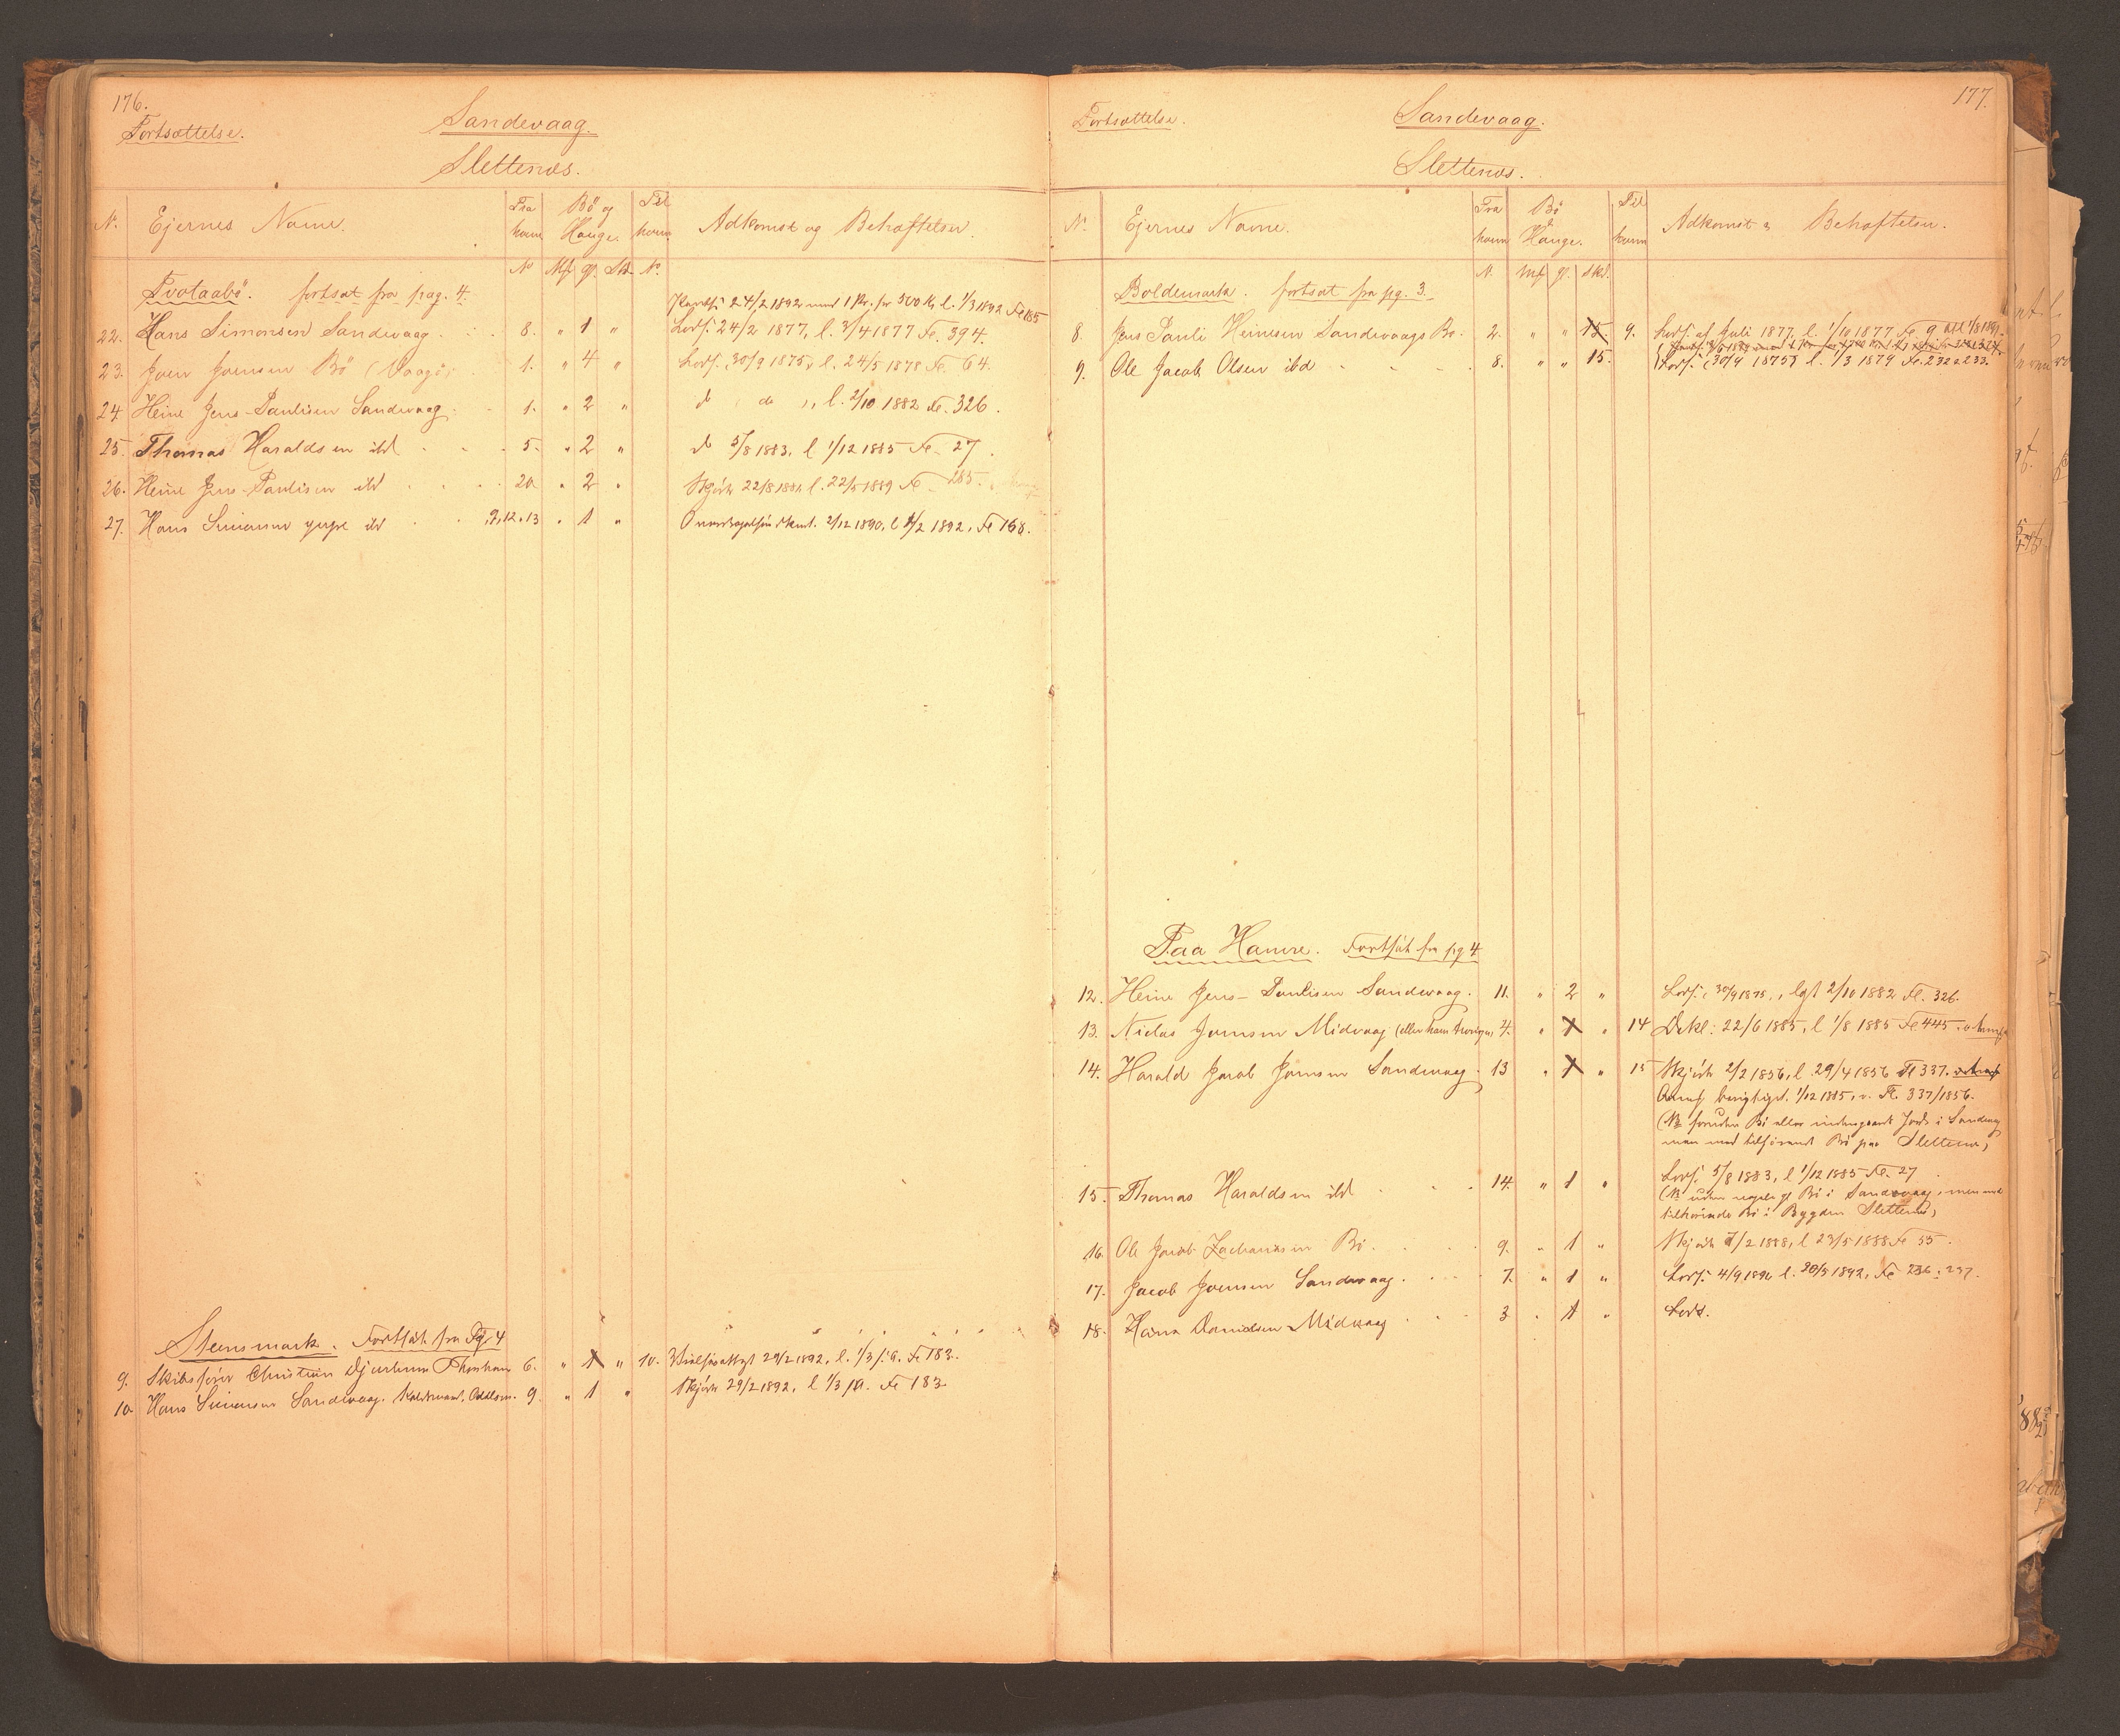 176.
Fortsættelse.
Sandevaag.
Slettenæs.
N. Ejernes Navne. Fra havn Bö og Hauge. Til havn Adkomst og Behæftelser.
No Mk gl. Sk. No.
Tvotaabö. fortsat fra pag. 4.
24/2 1892 med 1 Pr. for 500 Kr l. 1/3 1892 Fo 185
22. Hans Simonsen Sandevaag. 8. " 1 " Lovf. 24/2 1877, l. 3/4 1877 Fo. 394.
23. Joen Joensen Bö (Vaagö) 1. " 4 " Lovf. (30/9 1875), l. 24/5 1878 Fo. 64.
24. Heine Jens-Paulisen Sandevaag 1. " 2 " do do ", l. 2/10 1882 Fo. 326.
25. Thomas Haraldsen ibd 5. " 2 " do 5/8 1883, l 1/12 1885 Fo. 27.
26. Heine Jens-Paulisen ibd 20 " 2 " Skjöde 22/8 1881, l. 22/5 1889 Fo 285.
27. Hans Simonsen yngre ibd 9, 12, 13 " 1 " 2/12 1890, l 1/2 1892, Fo 168.
Steinsmark. Fortsat fra Pg. 4
9. Skibsförer Christian Djurhuus Thorshavn 6. " 1 " 10. 29/2 1892, l. 1/3 s. A. Fo 183.
10. Hans Simonsen Sandevaag. 9. " 1 " Skjöde 29/2 1892, l 1/3 s. A. Fo 183.
177.
Fortsættelse.
Sandevaag.
Slettenæs.
N. Ejernes Navne. Fra havn Bö & Hauge. Til havn Adkomst & Behæftelser.
N. Mk gl. Skl.
Boldemark. fortsat fra pg. 3.
8. Jens Pauli Heinesen Sandevaags Bö. 2. " " 15. 9. Lovf. af Juli 1877, l. 1/10 1877 Fo 9
9. Ole Jacob Olsen ibd 8. " " 15. Lovf. (30/9 1875) l. 1/3 1879 Fo. 232 & 233.
Paa Hamre. Fortsat fra pg 4
12. Heine Jens-Paulisen Sandevaag. 11. " 2 " Lovf. (30/9 1875), lgst 2/10 1882 Fol. 326.
13. Niclas Joensen Midvaag (eller hans Arvinger) 4. " 1 " 14 Dekl: 22/6 1885, l 1/8 1885 Fo 445
14. Harald Jacob Joensen Sandevaag. 13 " 1 " 15 Skjöde 2/2 1856, l 29/4 1856 Fo 337.
berigtiget. 1/12 1885, v. Fo. 337/1856.
(NB foruden Bö eller Jord i Sandevaag
men med tilhörende Bö paa Slettenæs)
15. Thomas Haraldsen ibd 14. " 1 " Lovf. 5/8 1883, l 1/12 1885 Fo. 27
(NB uden Bö i Sandevaag, men med
tilhörende Bö i Bygden Slettenæs)
16. Ole Jacob Zachariasen Bö. 9. " 1 " Skjöde 7/2 1888, l 23/5 1888 Fo 55.
17. Jacob Joensen Sandevaag. 7. " 1 " Lovf. 4/9 1890 l. 20/5 1892, Fo 236 & 237.
18. Hans Danielsen Midvaag 3 " 1 " Lovf.